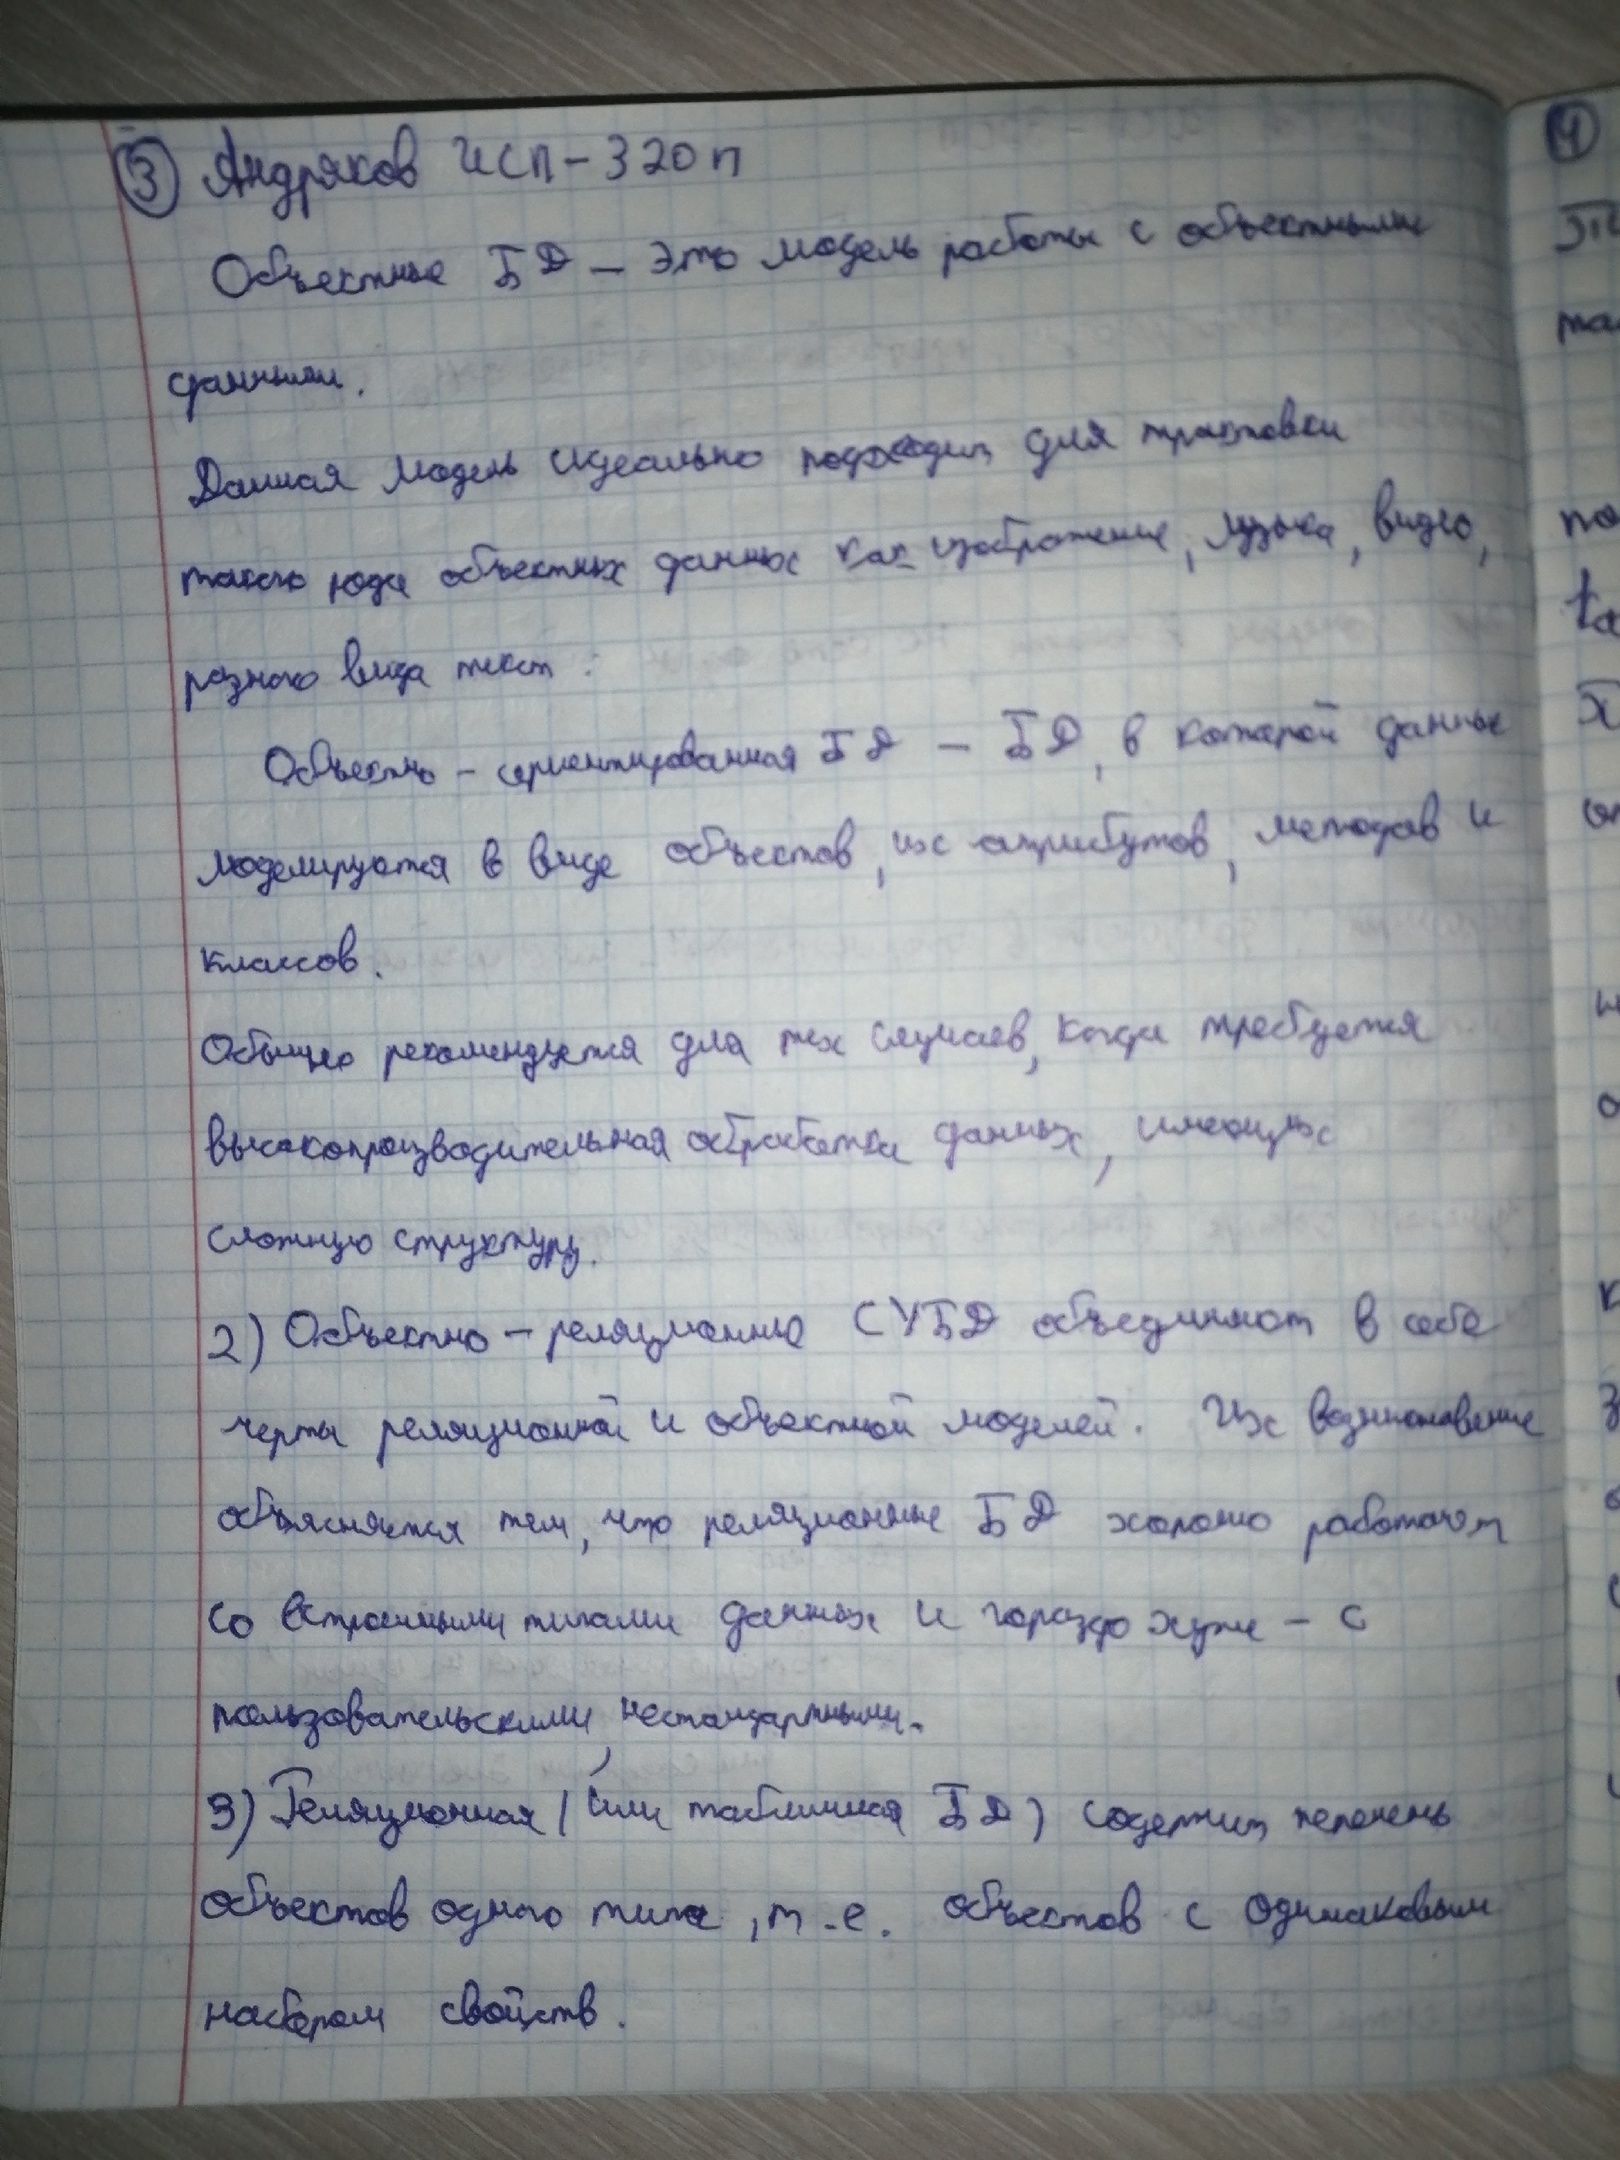 ③ Андряков ИСП-320п
Объектные БД – это модель работы с объектными
данными.
Данная модель идеально подходит для трактовки
такого рода объектных данных как изображение, музыка, видео,
разного вида текст.
Объектно-ориентированная БД – БД, в которой данные
моделируются в виде объектов, их атрибутов, методов и
классов.
Обычно рекомендуется для тех случаев, когда требуется
высокопроизводительная обработка данных, имеющих
сложную структуру.
2) Объектно-реляционные СУБД объединяют в себе
черты реляционной и объектной моделей. Их возникновение
объясняется тем, что реляционные БД хорошо работают
со встроенными типами данных и гораздо хуже – с
пользовательскими, нестандартными.
3) Реляционная (или табличная БД) содержит перечень
объектов одного типа, т.е. объектов с одинаковым
набором свойств.
④